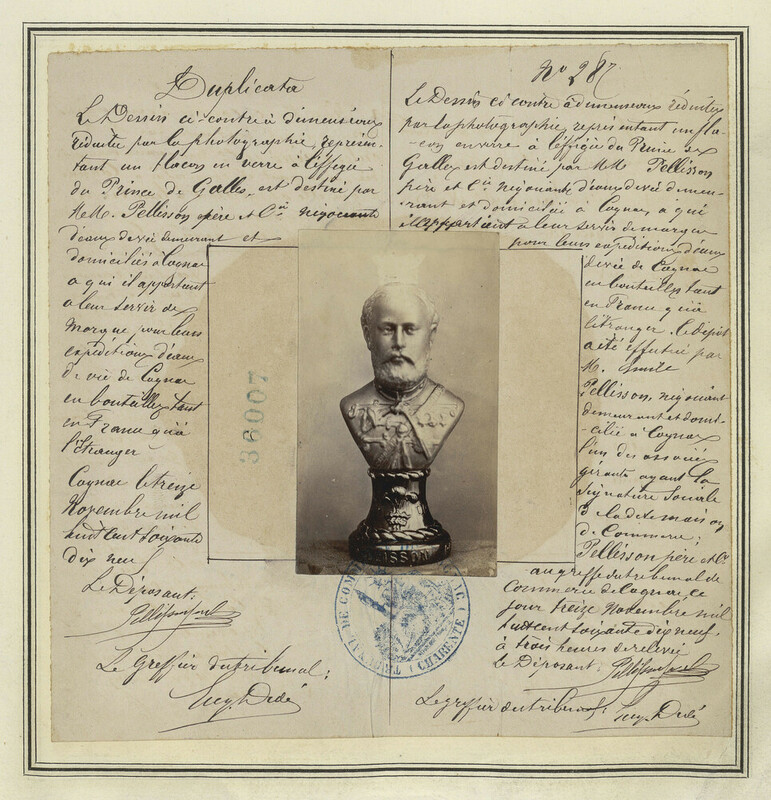 Duplicata
Le Dessin ci-contre à dimensions
réduites par la photographie, représen-
tant un flacon en verre à l'effigie
du Prince de Galles, est destiné par
M.M. Pellisson père et Cie négociants
d'eaux de vie demeurant et
domiciliés à Cognac
a qui il appartient
a leur servir de
marque pour leurs
expéditions d'eaux
de vie de Cognac
en bouteilles tant
en France qu'à
l'Etranger
Cognac le treize
Novembre mil
huit cent soixante
dix neuf
Le Déposant,
Le Greffier du tribunal:
Eug. Dedé
No 287
Le Dessin ci contre à dimensions réduites
par la photographie, représentant un fla-
-con en verre à l'effigie du Prince de
Galles est destiné par MM Pellisson
père et Cie négociants d'eaux de vie demeu-
rant et domiciliés à Cognac, à qui
il appartient a leur servir de marque
pour leurs expéditions d'eaux
de vie de Cognac
en bouteilles tant
en France qu'à
l'étranger. le depôt
a été effectué par
M. Emile
Pellisson, négociant
demeurant et domi-
-cilié à Cognac
l'un des associés
gérants ayant la
signature sociale
de la dite maison
de Commerce;
Pellisson père et Cie
au greffe du tribunal de
Commerce de Cognac, ce
jour treize Novembre mil
huit cent soixante dix neuf,
à trois heures de relevée
Le Déposant:
Le greffier du tribunal: Eug. Dedé
36007
TRIBUNAL DE COM
(CHARENTE)